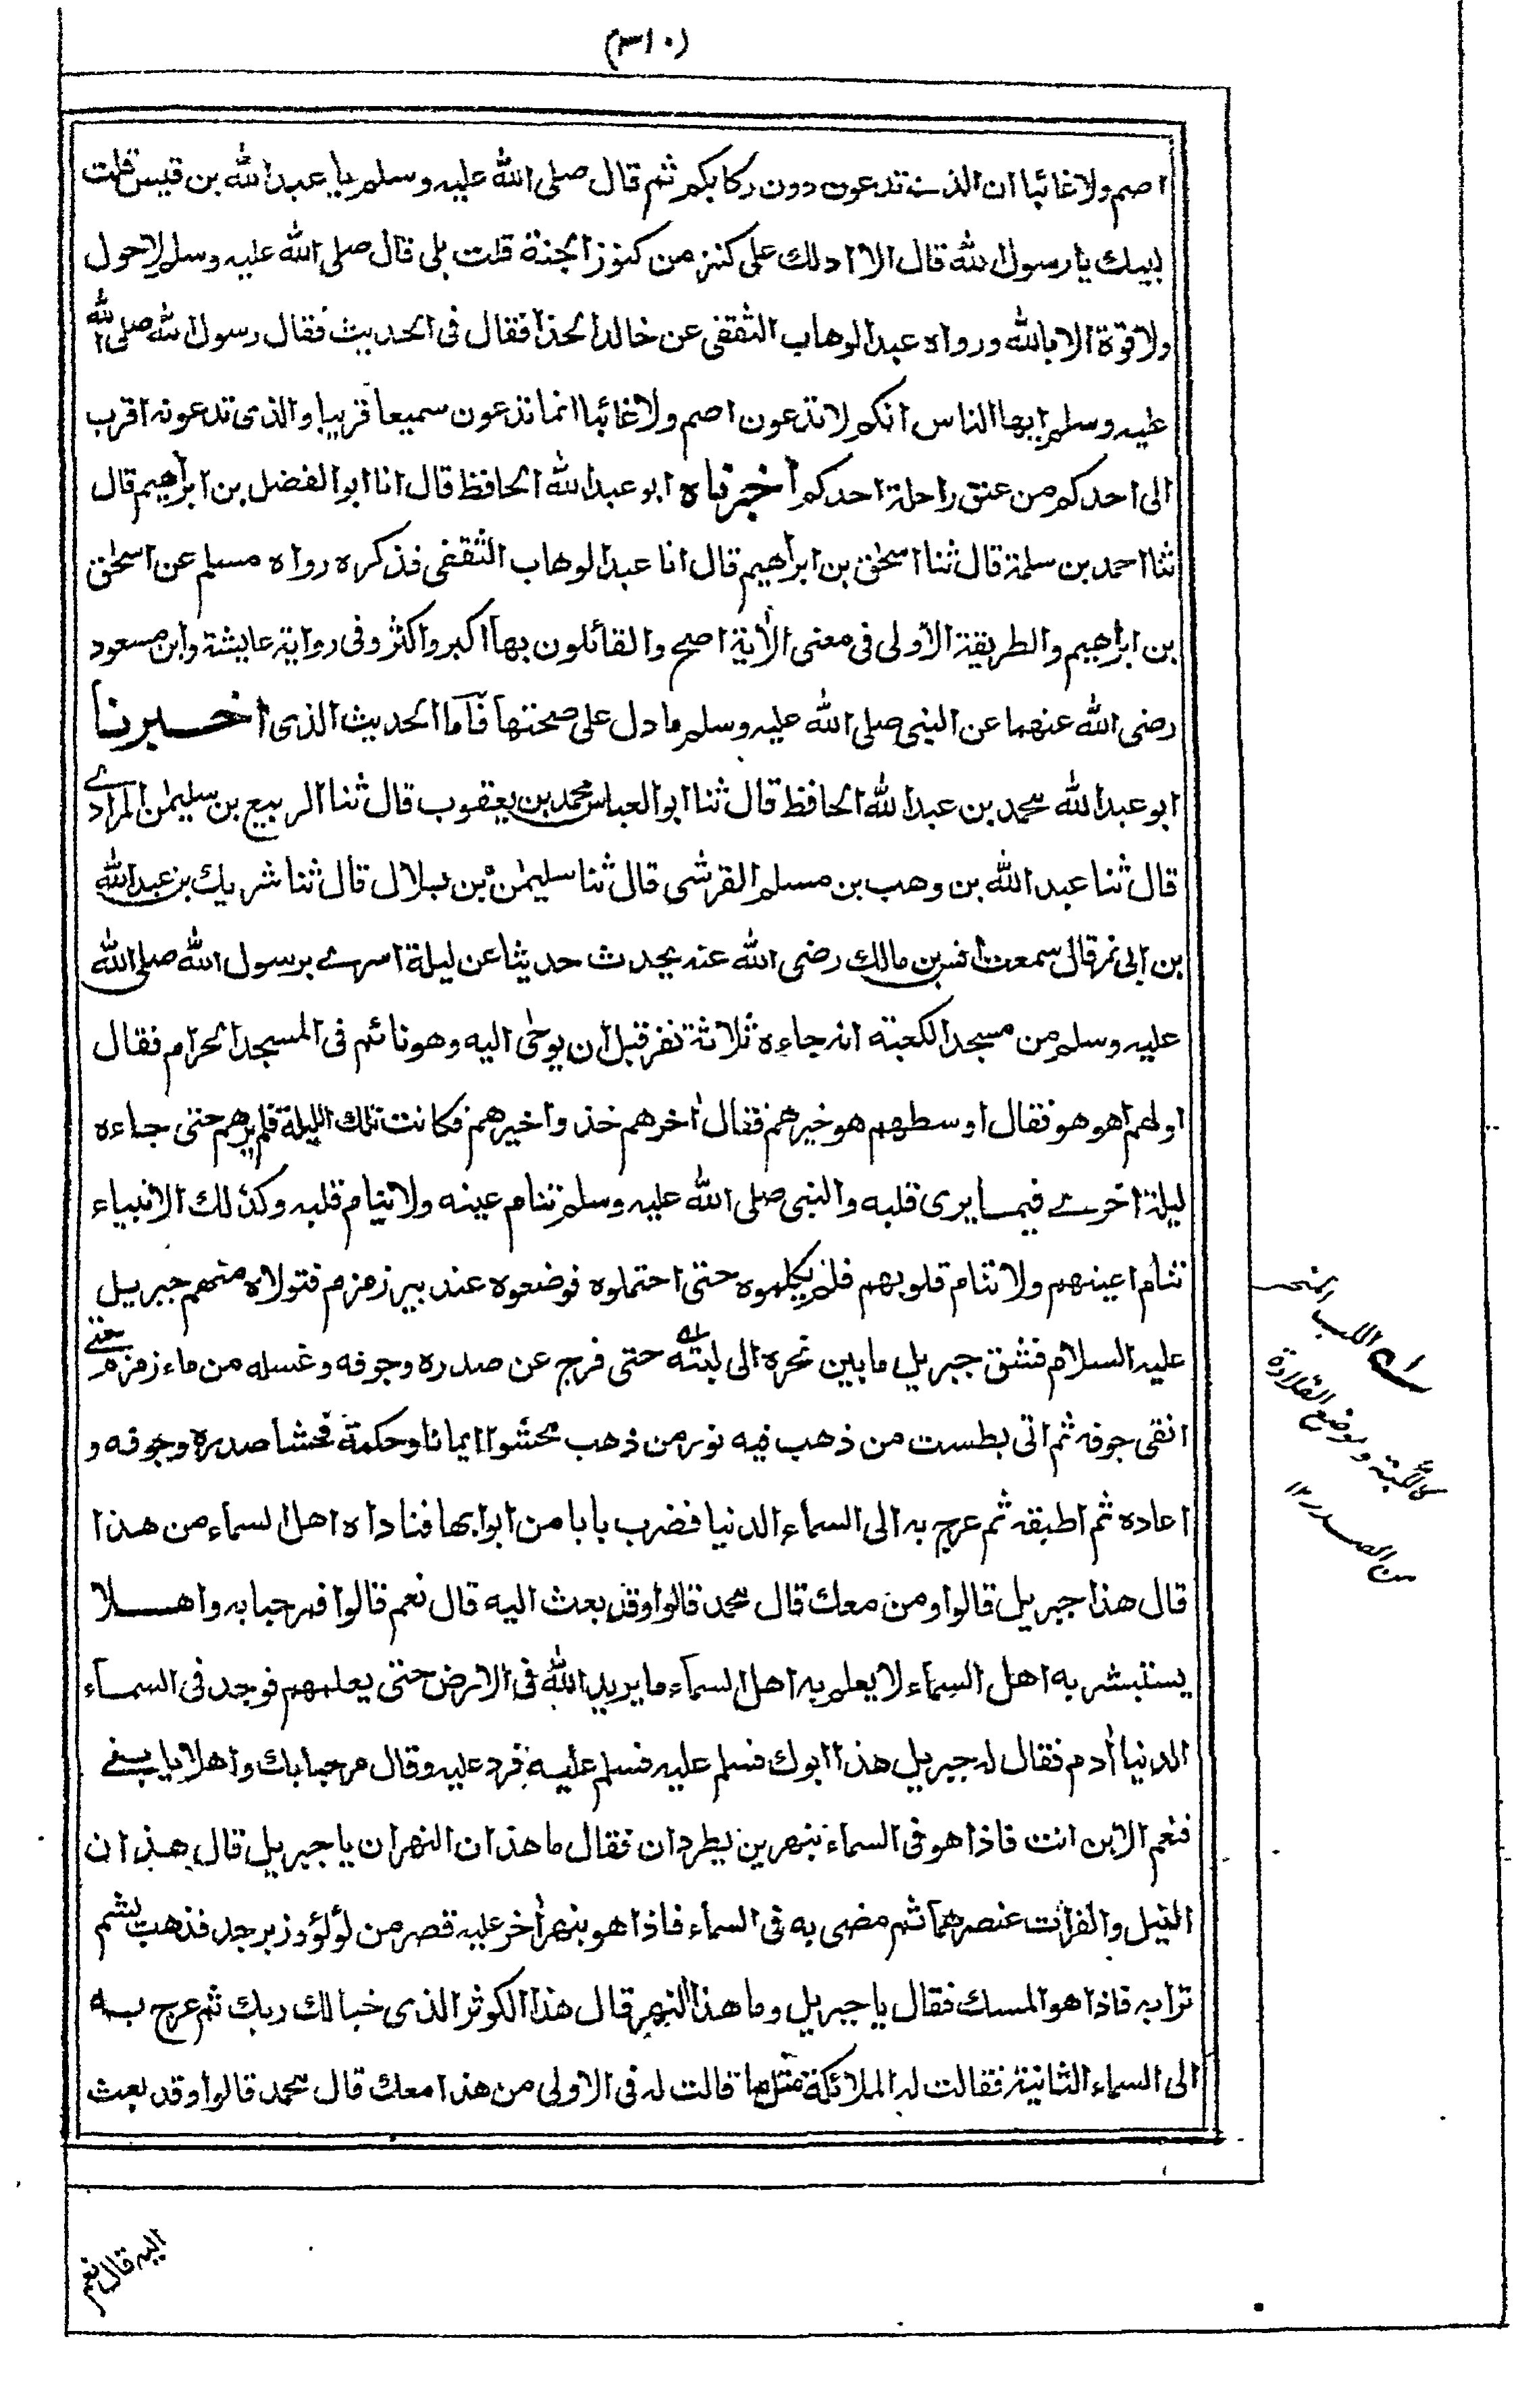 (٣١٠)
اصم ولا غائبا ان الذے تدعون دون ركابكم ثم قال صلى الله عليه وسلم يا عبد الله بن قيس قلت
لبيك يا رسول الله قال الا ادلك على كنز من كنوز الجنة قلت بلى قال صلى الله عليه وسلم لا حول
ولا قوة الا بالله ورواه عبد الوهاب الثقفى عن خالد الحذا فقال فى الحديث فقال رسول الله صلى الله
عليه وسلم ايها الناس انكم لا تدعون اصم ولا غائبا انما تدعون سميعا قريبا والذى تدعونه اقرب
الى احدكم من عنق راحلة احدكم اخبرناه ابو عبد الله الحافظ قال انا ابو الفضل بن ابراهيم قال
ثنا احمد بن سلمة قال ثنا اسحٰق بن ابراهيم قال انا عبد الوهاب الثقفى فذكره رواه مسلم عن اسحٰق
بن ابراهيم والطريقة الاولى فى معنى الاٰية اصح والقائلون بها اكبر واكثر وفى رواية عايشة وابن مسعود
رضى الله عنهما عن النبى صلى الله عليه وسلم ما دل على صحتها فاما الحديث الذى اخبرنا
ابو عبد الله محمد بن عبد الله الحافظ قال ثنا ابو العباس محمد بن يعقوب قال ثنا الربيع بن سليمٰن المرادے
قال ثنا عبد الله بن وهب بن مسلم القرشى قال ثنا سليمٰن بن بلال قال ثنا شريك بن عبد الله
بن ابى نمر قال سمعت انس بن مالك رضى الله عنه يحدث حديثا عن ليلة اسرے برسول الله صلى الله
عليه وسلم من مسجد الكعبته انه جاءه ثلاثة نفر قبل ان يوحٰى اليه وهو نائم فى المسجد الحرام فقال
اولهم اهو هو فقال اوسطهم هو خيرهم فقال اٰخرهم خذوا خيرهم فكانت تلك الليلة فلم يرهم حتى جاءه
ليلة اخرے فيما يرى قلبه والنبى صلى الله عليه وسلم تنام عينه ولا ينام قلبه وكذلك الانبياء
تنام اعينهم ولا تنام قلوبهم فلم يكلموه حتى احتملوه فوضعوه عند بير زمزم فتولاه منهم جبريل
عليه السلام فشق جبريل ما بين نحره الى لبته له حتى فرج عن صدره وجوفه وغسله من ماء زمزم حتے
انقى جوفه ثم اتى بطست من ذهب فيه نور من ذهب محشوا ايمانا وحكمة فحشا صدره وجوفه و
اعاده ثم اطبقه ثم عرج به الى السماء الدنيا فضرب بابا من ابوابها فناداه اهل السماء من هذا
قال هذا جبريل قالوا ومن معك قال محمد قالوا وقد بعث اليه قال نعم قالوا فمرحبا به واهلا
يستبشر به اهل السماء لا يعلم به اهل السماء ما يريد الله فى الارض حتى يعلمهم فوجد فى السماء
الدنيا اٰدم فقال له جبريل هذا ابوك فسلم عليه فسلم عليه فرد عليه وقال مرحبا بك واهلا يا بنے
فنعم الابن انت فاذا هو فى السماء بنهرين يطردان فقال ما هذان النهران يا جبريل قال هذان
النيل والفرات عنصرهما ثم مضى به فى السماء فاذا هو بنهر اٰخر عليه قصر من لؤلؤ وزبرجد فذهب يشم
ترابه فاذا هو المسك فقال يا جبريل وما هذا النهر قال هذا الكوثر الذى خبا لك ربك ثم عرج به
الى السماء الثانية فقالت له الملائكة مثل ما قالت له فى الاولى من هذا معك قال محمد قالوا وقد بعث
له اللب المنحر
كاللبة وموضع القلادة
من الصدر ١٢
اليه قال نعم